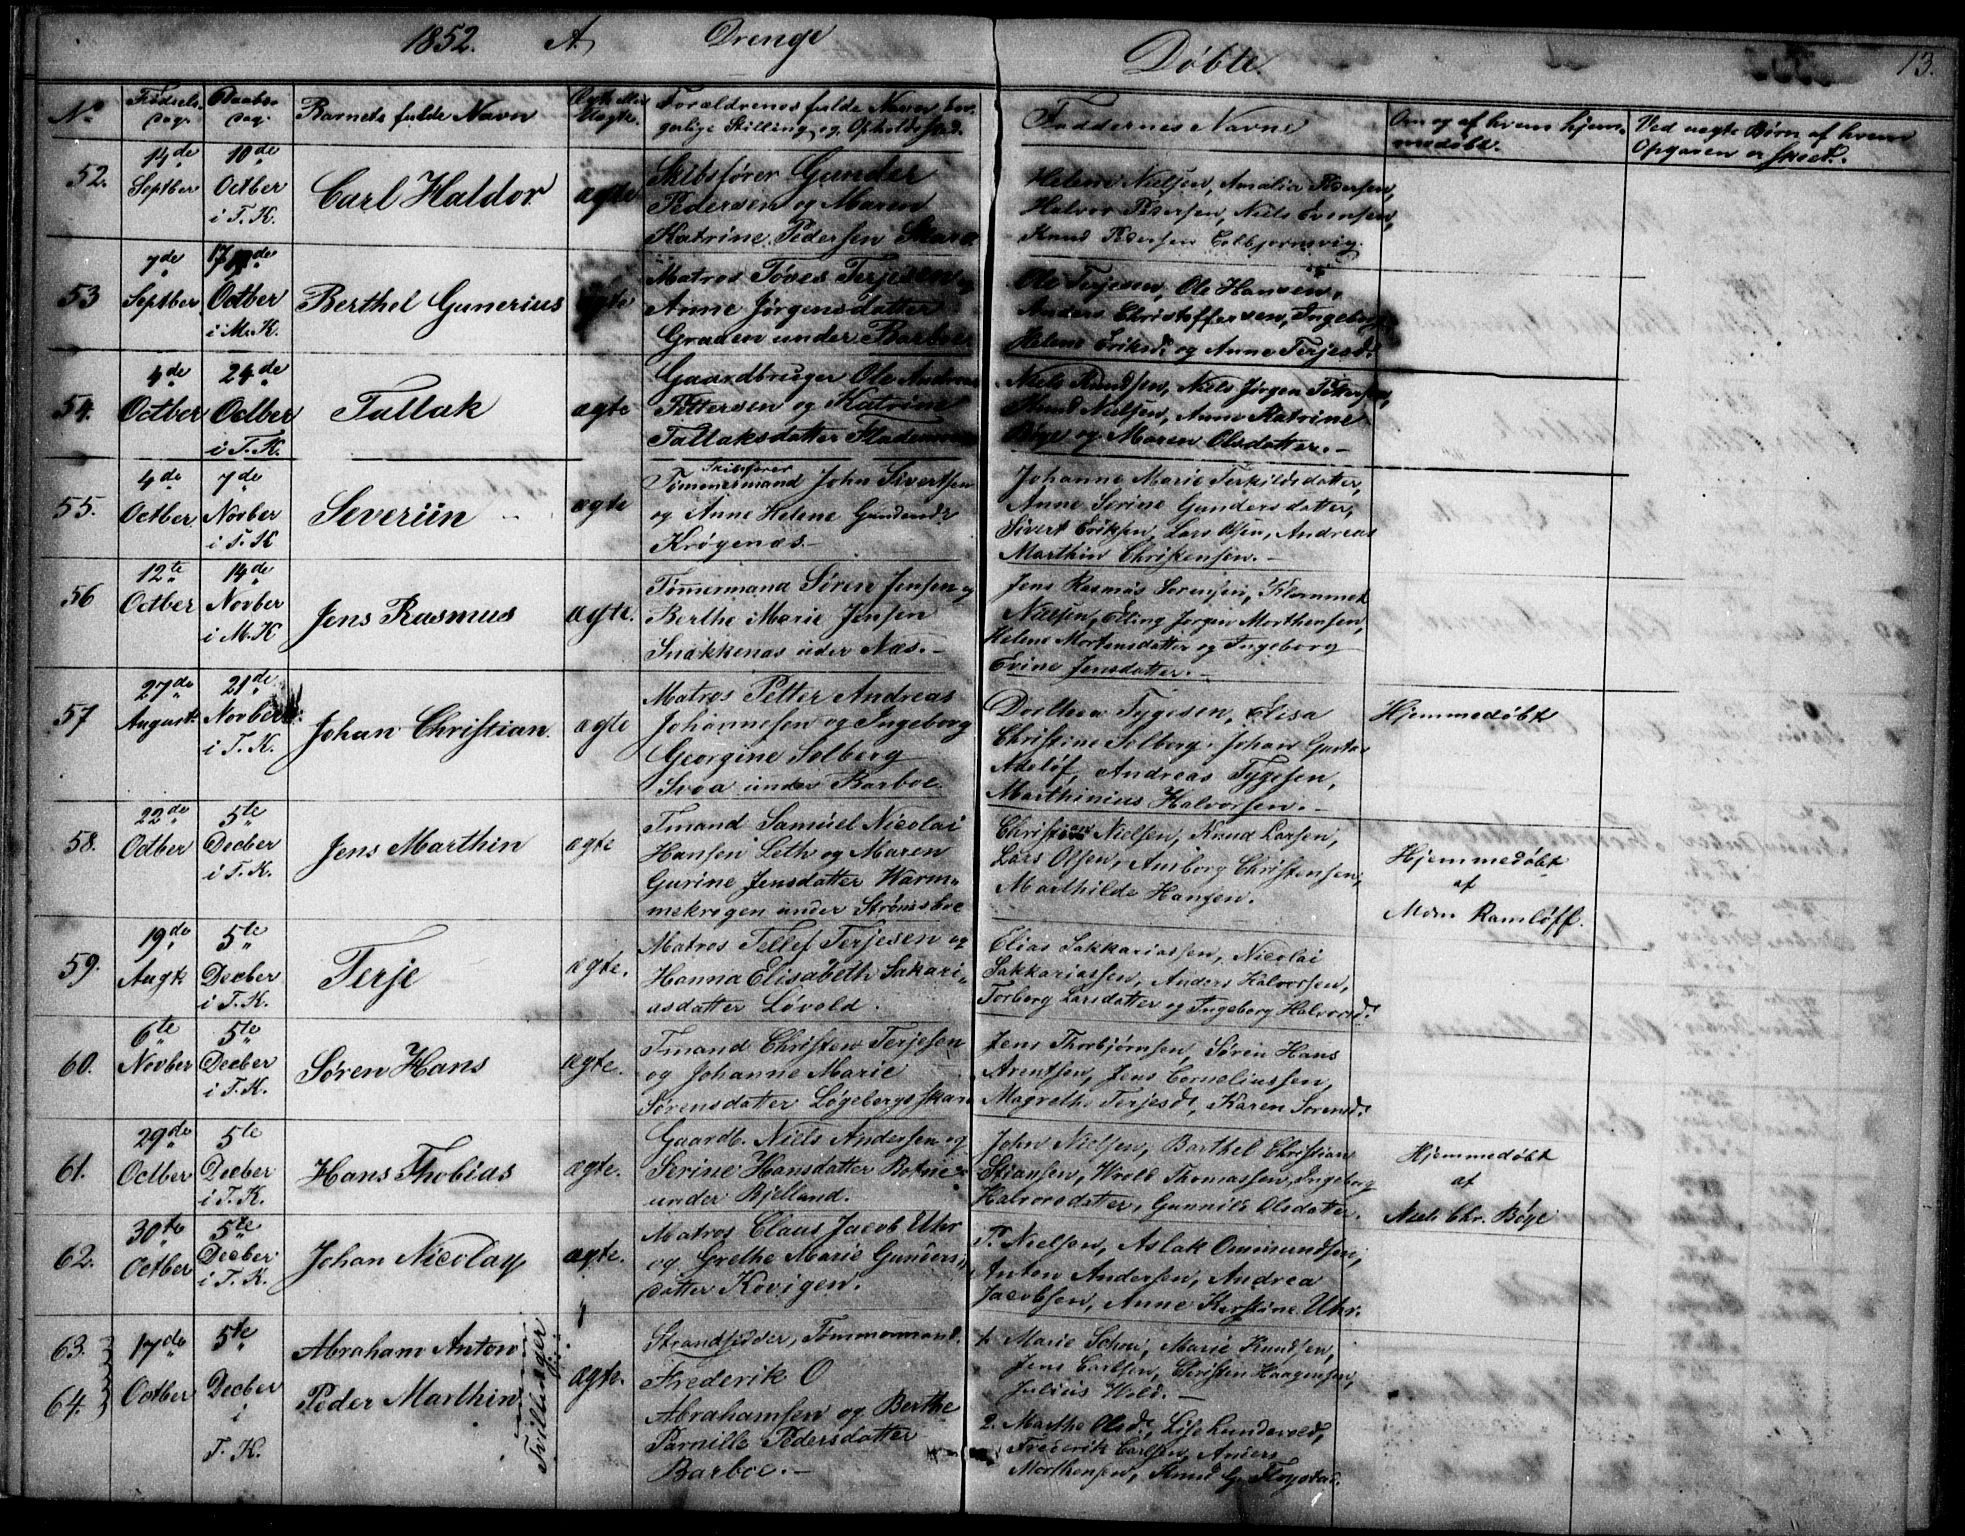 1852. A. Drenge Døbte. 13.
No Fødsels- Daabs- Barnets fulde Navn Ægte eller Forældrenes fulde Navn, bor- Faddernes Navne Om og af hvem hjem- Ved uægte Børn af hvem
Dag. Dag. Uægte. gerlige Stilling og Opholdssted. medøbt. Opgaven er skeet.
52. 14de 10de Carl Haldor ægte Skibsfører Gunder Helene Nielsen, Amalia Pedersen,
Septber Octber Pedersen og Maren Halvor Pedersen, Niels Evensen,
i T. K. Katrine Pedersen Skare Knud Pedersen Colbjørnsvig.
53 7de 17de Berthel Gunerius ægte Matros Toves Terjesen og Ole Terjesen, Ole Hansen,
Septber Octber Anne Jørgensdatter Anders Christoffersen, Ingeborg
i M. K. Graden under Barboe Helene Eriksd. og Anne Terjesd.
54. 4de 24de Tallak ægte Gaardbruger Ole Andreas Niels Knudsen, Niels Jørgen Pettersen,
Octber Octber Pettersen og Katrine Knud Nielsen, Anne Katrine
i T. K. Tallaksdatter Bøge og Maren Olsdatter.-
55. 4de 7de Severiin ægte Skibsfører
Tømmermand John Sivertsen Johanne Marie Terkildsdatter,
Octber Novber og Anne Helene Gundersd. Anne Serine Gundersdatter,
i T. K Krøgenæs.- Sivert Eriksen, Lars Olsen, Andreas
Marthin Christensen.-
56 12te 14de Jens Rasmus ægte. Tømmermand Søren Jensen og Jens Rasmus Sørensen,
Octber Novber Berthe Marie Jensen Nielsen, Elling Jørgen Morthensen,
i M. K Snakkenæs under Næs.- Helene Mortensdatter og Ingeborg
Evine Jensdatter.-
57 27de 21de Johan Christian. ægte Matros Petter Andreas Dorthea Tygesen, Elisa Hjemmedøbt
August Novber Johannesen og Ingeborg Christine Solberg, Johan Gustav
i T. K. Georgine Solberg Adeløf, Andreas Tygesen,
Svoa under Barboe Marthinius Halvorsen.-
58. 22de 5te Jens Marthin ægte Tmand Samuel Nicolai Christian Nielsen, Knud Larsen, Hjemmedøbt
Octber Decber Hansen Leth og Maren Lars Olsen, Amborg Christensen, af
i T. K. Gurine Jensdatter Warm- Marthilde Hansen. Mdm Ramløff.
mekrogen under Strømsboe
59. 19de 5te Terje ægte. Matros Tellef Terjesen og Elias Sakkariassen, Nicolai
Augt Decber Hanna Elisabeth Sakari- Sakkariassen, Anders Halvorsen,
i T. K. asdatter Løvold. Torborg Larsdatter og Ingeborg Halvorsd.
60. 6te 5te Søren Hans ægte. Tmand Christen Terjesen Jens Thorbjørnsen, Søren Hans
Novber Decber og Johanne Marie Arentsen, Jens Corneliussen,
i T. K. Sørensdatter Løgebergsskare Magrethe Terjesd., Karen Sorensd.
61. 29de 5te Hans Thobias ægte. Gaardb. Niels Andersen og John Nielsen, Barthel Christian Hjemmedøbt
Octber Decber Serine Hansdatter Botne Stiansen, Wrold Thomassen, Ingeborg af
i T. K. under Rjelland. Halvorsdatter, Gunnild Olsdatter. Niels Chr. Bøge
62. 30te 5te Johan Nicolay ægte. Matros Claus Jacob Uhr T. Nielsen, Aslak Ommundsen,
Octber Decber og Grethe Marie Gunders- Anton Andersen, Andrea
i T. K. datter Kovigen. Jacobsen, Anne Kerstine Uhr.
63. 17de 5te Abraham Anton Strandsidder, Tømmermand. 1. Marie Schou, Marie Knudsen,
64. Octber Decber Peder Marthin Tvillinger ægte. Frederik O Jens Carlsen, Christen Haagensen,
i Abrahamsen og Berthe Julius Wold.-
T. K. Parnille Pedersdatter 2. Marthe Olsd., Lise Lundevold,
Barboe.- Frederik Carlsen, Anders
Morthensen, Knud G. Fløystad.